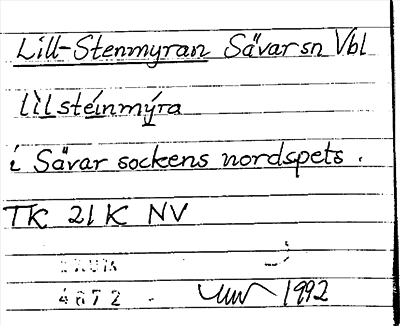 Lill-Stenmyran Sävar sn Vbl
lìlstéinmýra
i Sävar sockens nordspets.
TK 21 K NV
4672 1992